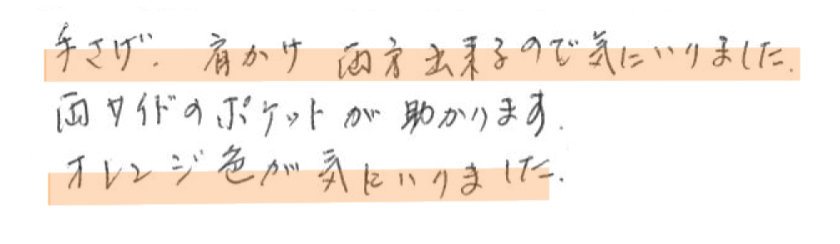 手さげ、肩かけ 両方出来るので気にいりました。
両サイドのポケットが助かります。
オレンジ色が気にいりました。